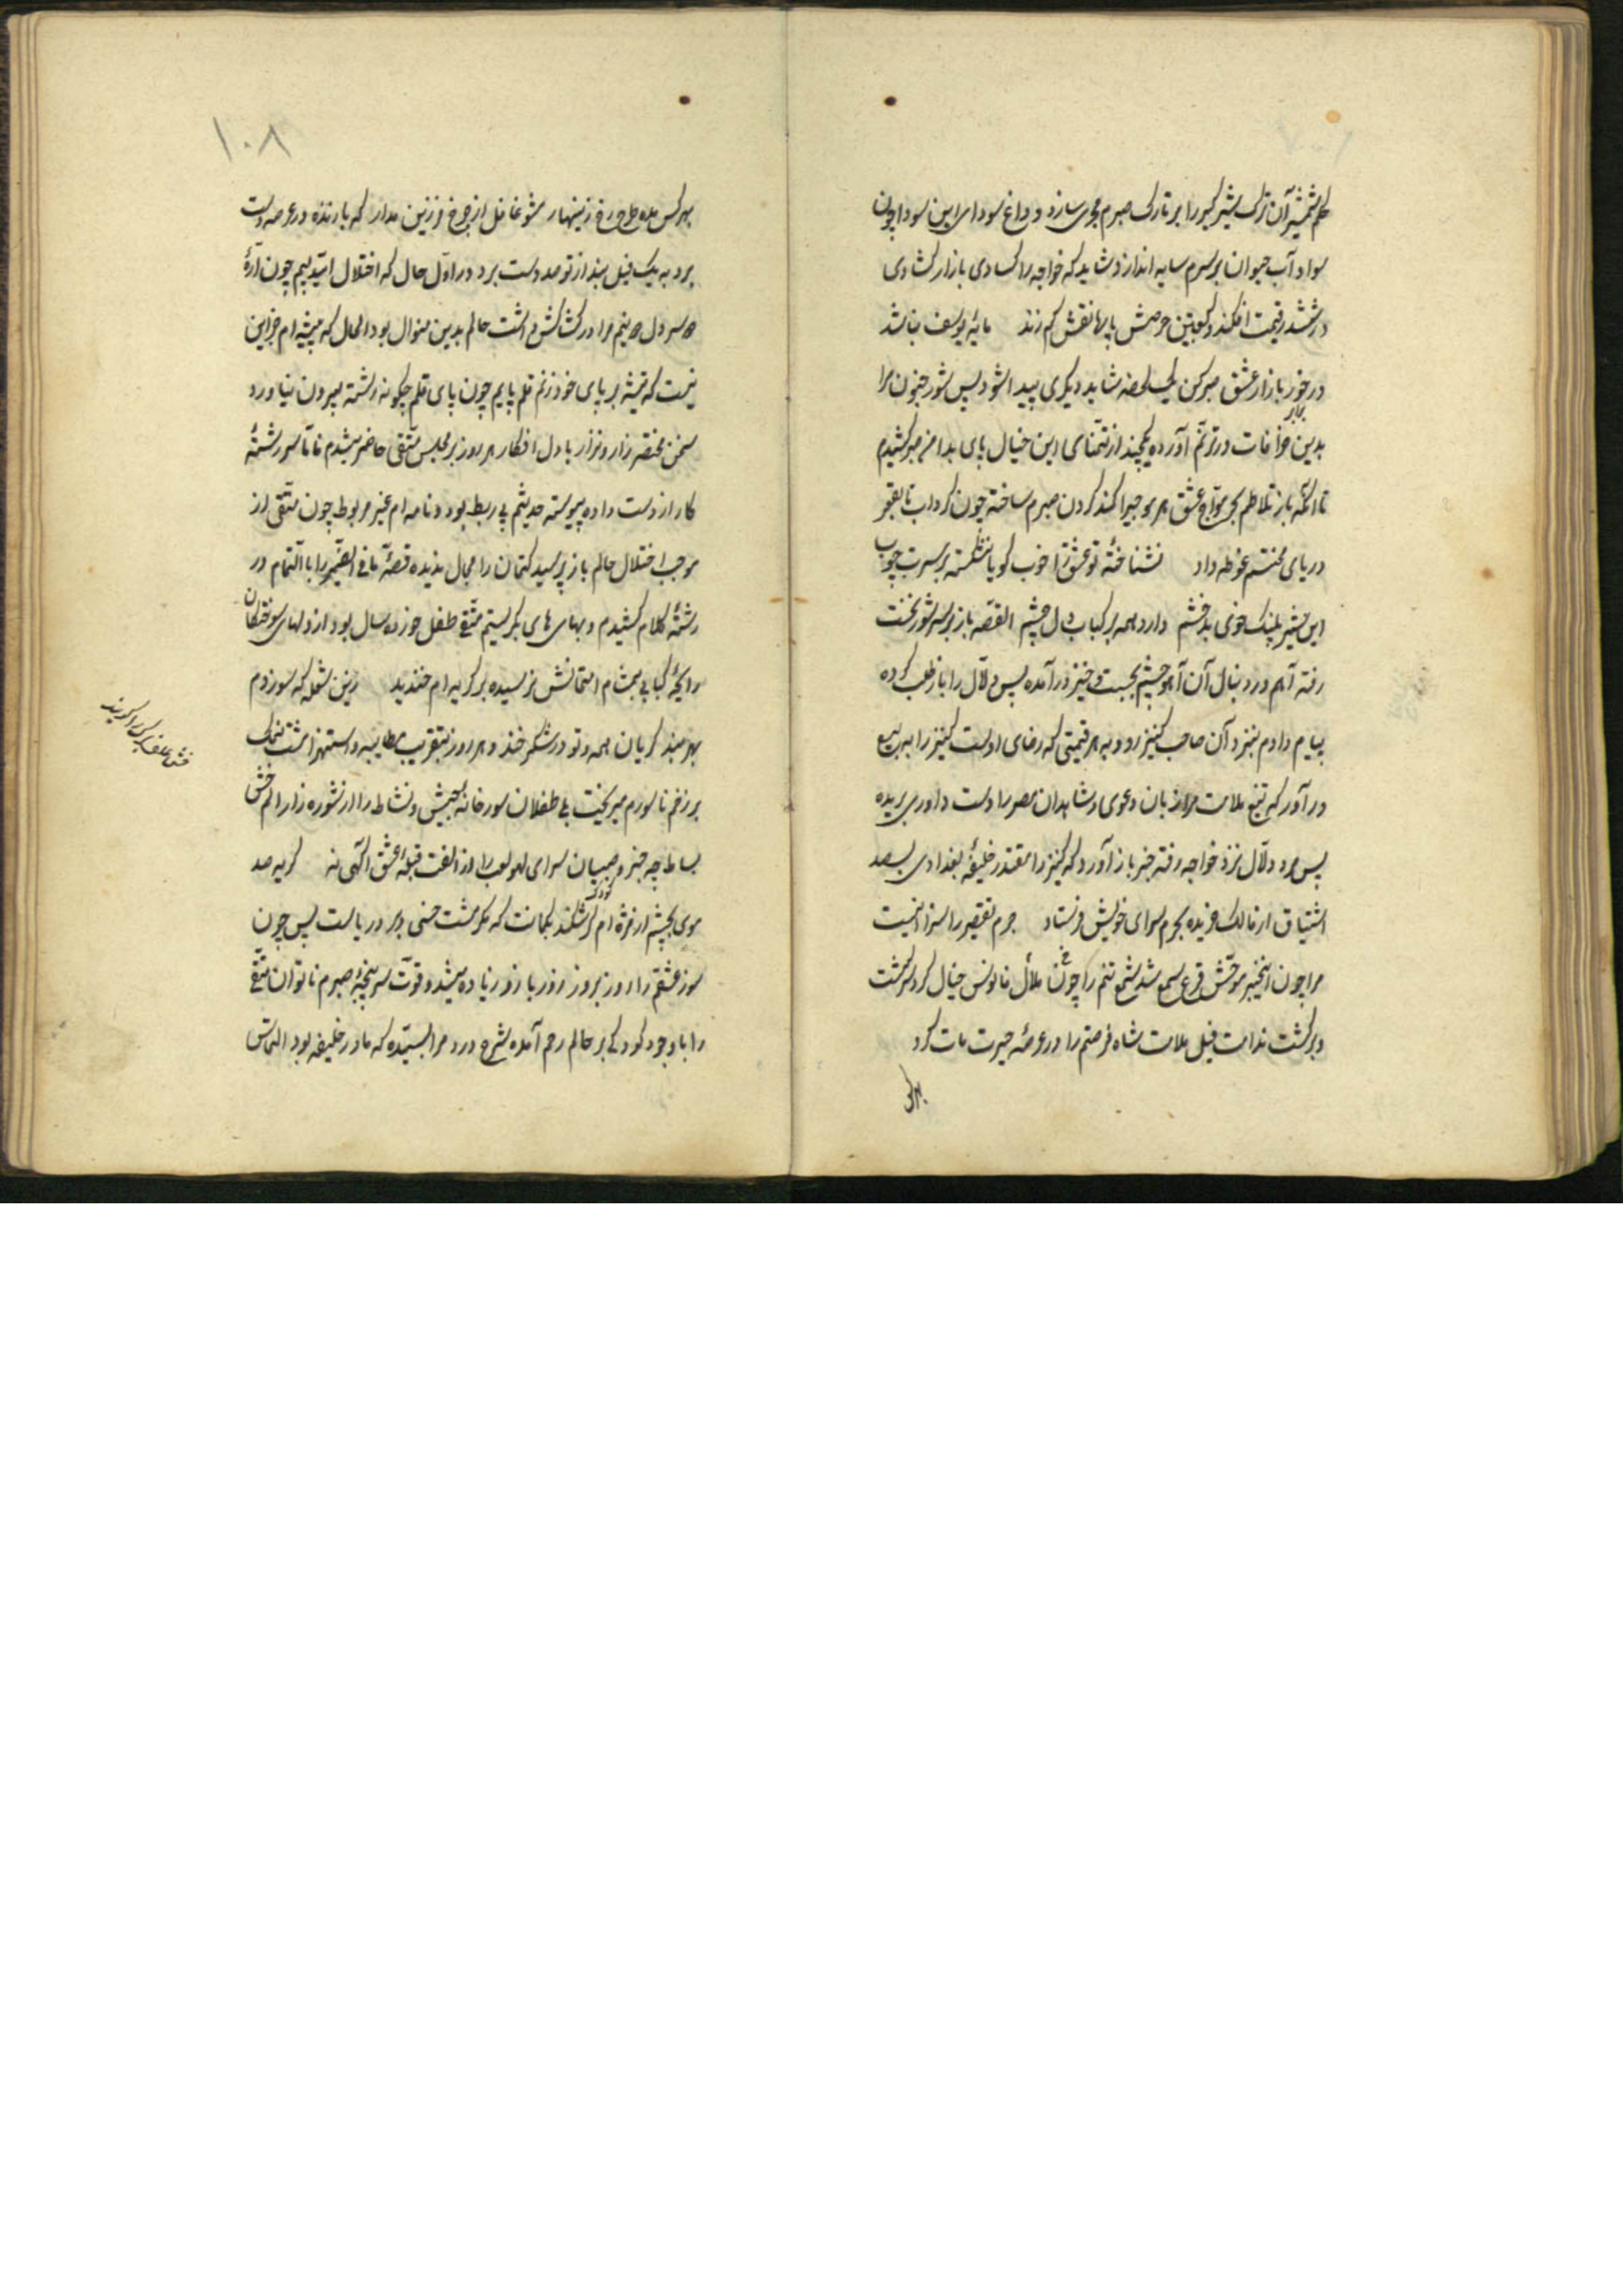 شمشیر آن ترک شیر گیر را بر تارک صبرم مجری سازد و داغ سودای این سودا چون
سواد آب حیوان بر سرم سایه اندازد شاید که خواجه را کسادی بازار کشادی
در ششدر قیمت افکند و کعبتین حرصش پا بها نقش کم زند مایهٔ یوسف نباشد
در خور بازار عشق صبر کن یک لحضه شاید دیکری پیدا شود پس شور جنون مرا
بدین خرافات در ترنم آورده یکچند از تمنای این خیال پای بدامن صبر کشیدم
تا انکه باز تلاطم بحر مواج عشق هر موجیرا کمند کردن صبرم ساخته چون کرداب تا بقعر
دریای محنتم غوطه داد نشناختهٔ تو عشق را خوب کویا نشکسته بر سرت چوب
این شیر پلنک خوی بدخشم دارد همه بر کباب دل چشم القصه باز بر سر شور بخت
رفته آهم در دنبال آن آهو چشم بجست و خیز در آمده پس دلال را باز طلب کرده
پیام دادم بنزد آن صاحب کنیز رو و به هر قیمتی که رضای اوست کنیز را به بیع
در آور که تیغ ملامت مرا زبان دعوی و شاهدان مصر را دست داوری بریده
پس مرد دلال نزد خواجه رفته خبر باز آورد که کنیز را مقتدر خلیفهٔ بغدادی بصد
اشتیاق از مالک خریده بحرم سرای خویش فرستاد جرم تقصیر را سزا اینست
مرا چون اینخبر موحش قرع سمع شد شمع تنم را چون ملال فانوس خیال کرد سرکشت
و برکشت ندامت فیل ملامت شاه فرصتم را در عرصهٔ حیرت مات کرد
بهر کس
۱۰۸
بهر کس مده طرح رخ زینهار مشو غافل از چرخ فرزین مدار که بازنده در عرصه دست
برد به یک فیل بند از تو صد دست برد در اول حال که اختلال امیدبیم چون ارهٔ
دو سر دل دو نیم مرا در کشاکش داشت حالم بدین منوال بود الحال که پیشه ام جز این
نیست که تیشه بر پای خود زنم قلم پایم چون پای قلم چکونه رشته بیرون نیاورد
سخن مختصر زار و نزار با دل افکار هر روز بر مجلس متقی حاضر میشدم فاما سر رشتهٔ
کار از دست داده پیوسته حدیثم بی ربط بود و نامه ام غیر مربوط چون متقی از
موجب اختلال حالم باز پرسید کتمان را مجال ندیده قصهٔ ما فی الضمیر را بالتمام در
رشتهٔ کلام کشیدم و بهای های بکریستم متقی طفل خورد سال بود از دلهای سوختکان
رایحهٔ کبابی بمشام امتحانش نرسیده بر کریه ام خندید زین شعله که سوزدم
بهر بند کریان همه و تو در شکر خند و هر روز بتقریب مطایبه و استهزا مشت نمک
بر زخم ناسورم میریخت بی طفلان سورخانهٔ عیش و نشاط را از شوره زار الم عشق
بساط چه خبر و صبیان سرای لهو لعب را از الفت قبلهٔ عشق اکهی نه کریه صد
موی بچشم از مژه ام کر شکند بکمانت که مکر مشت خسی در دریاست پس چون
کودک
سوز عشقم را روز بروز زور بازو زیاده میشد و قوت سر پنجهٔ صبرم ناتوان متقی
را با وجود کودکی بر حالم رحم آمده شرح درد مرا بسیده که مادر خلیفه بود التماس